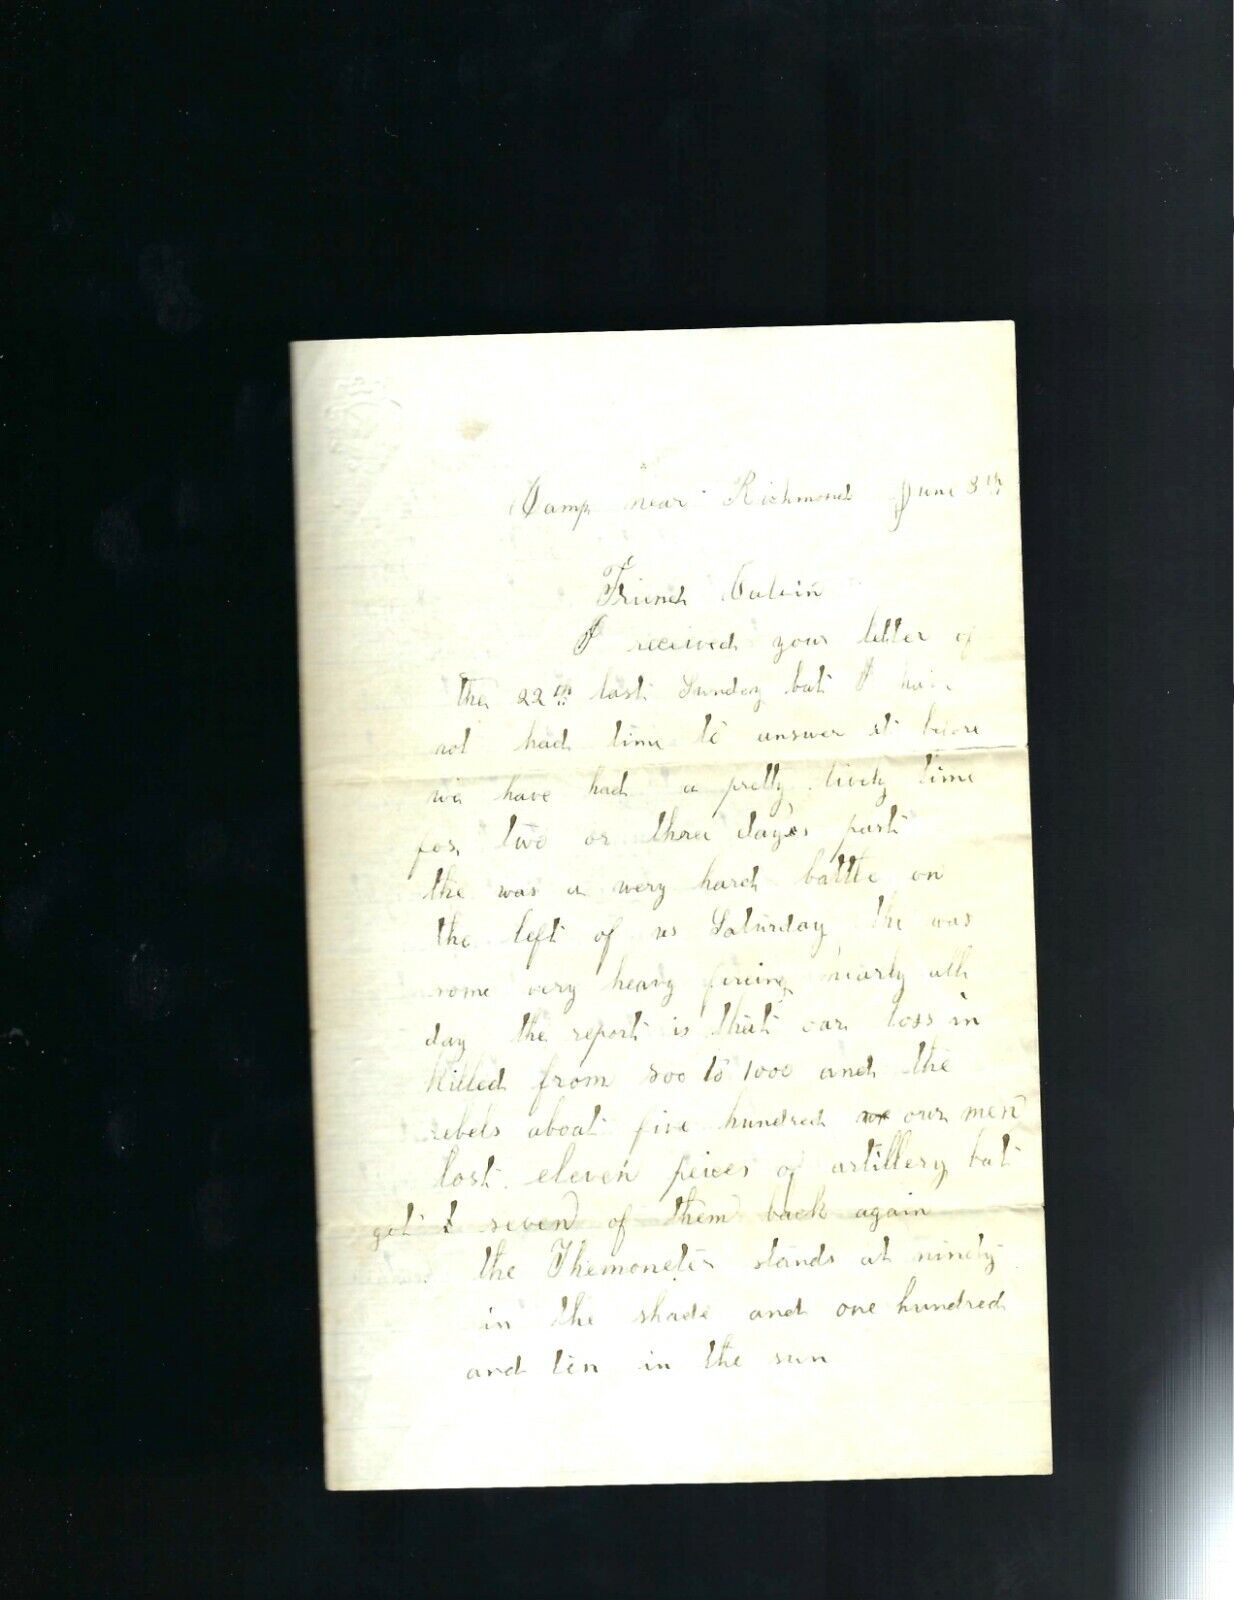 Camp near Richmond June 3th
Friend Calvin
I received your letter of
the 22th last Sunday but I have
not had time to answer it before
we have had a pretty lively time
for two or three days past
the was a very hard battle on
the left of us Saturday the was
some very heavy fireing nearly all
day the report is that our loss in
killed from 800 to 1000 and the
rebels about five hundred our men
lost eleven peices of artillery but
got seven of them back again
the Themoneter stands at nindy
in the shade and one hundred
and ten in the sun